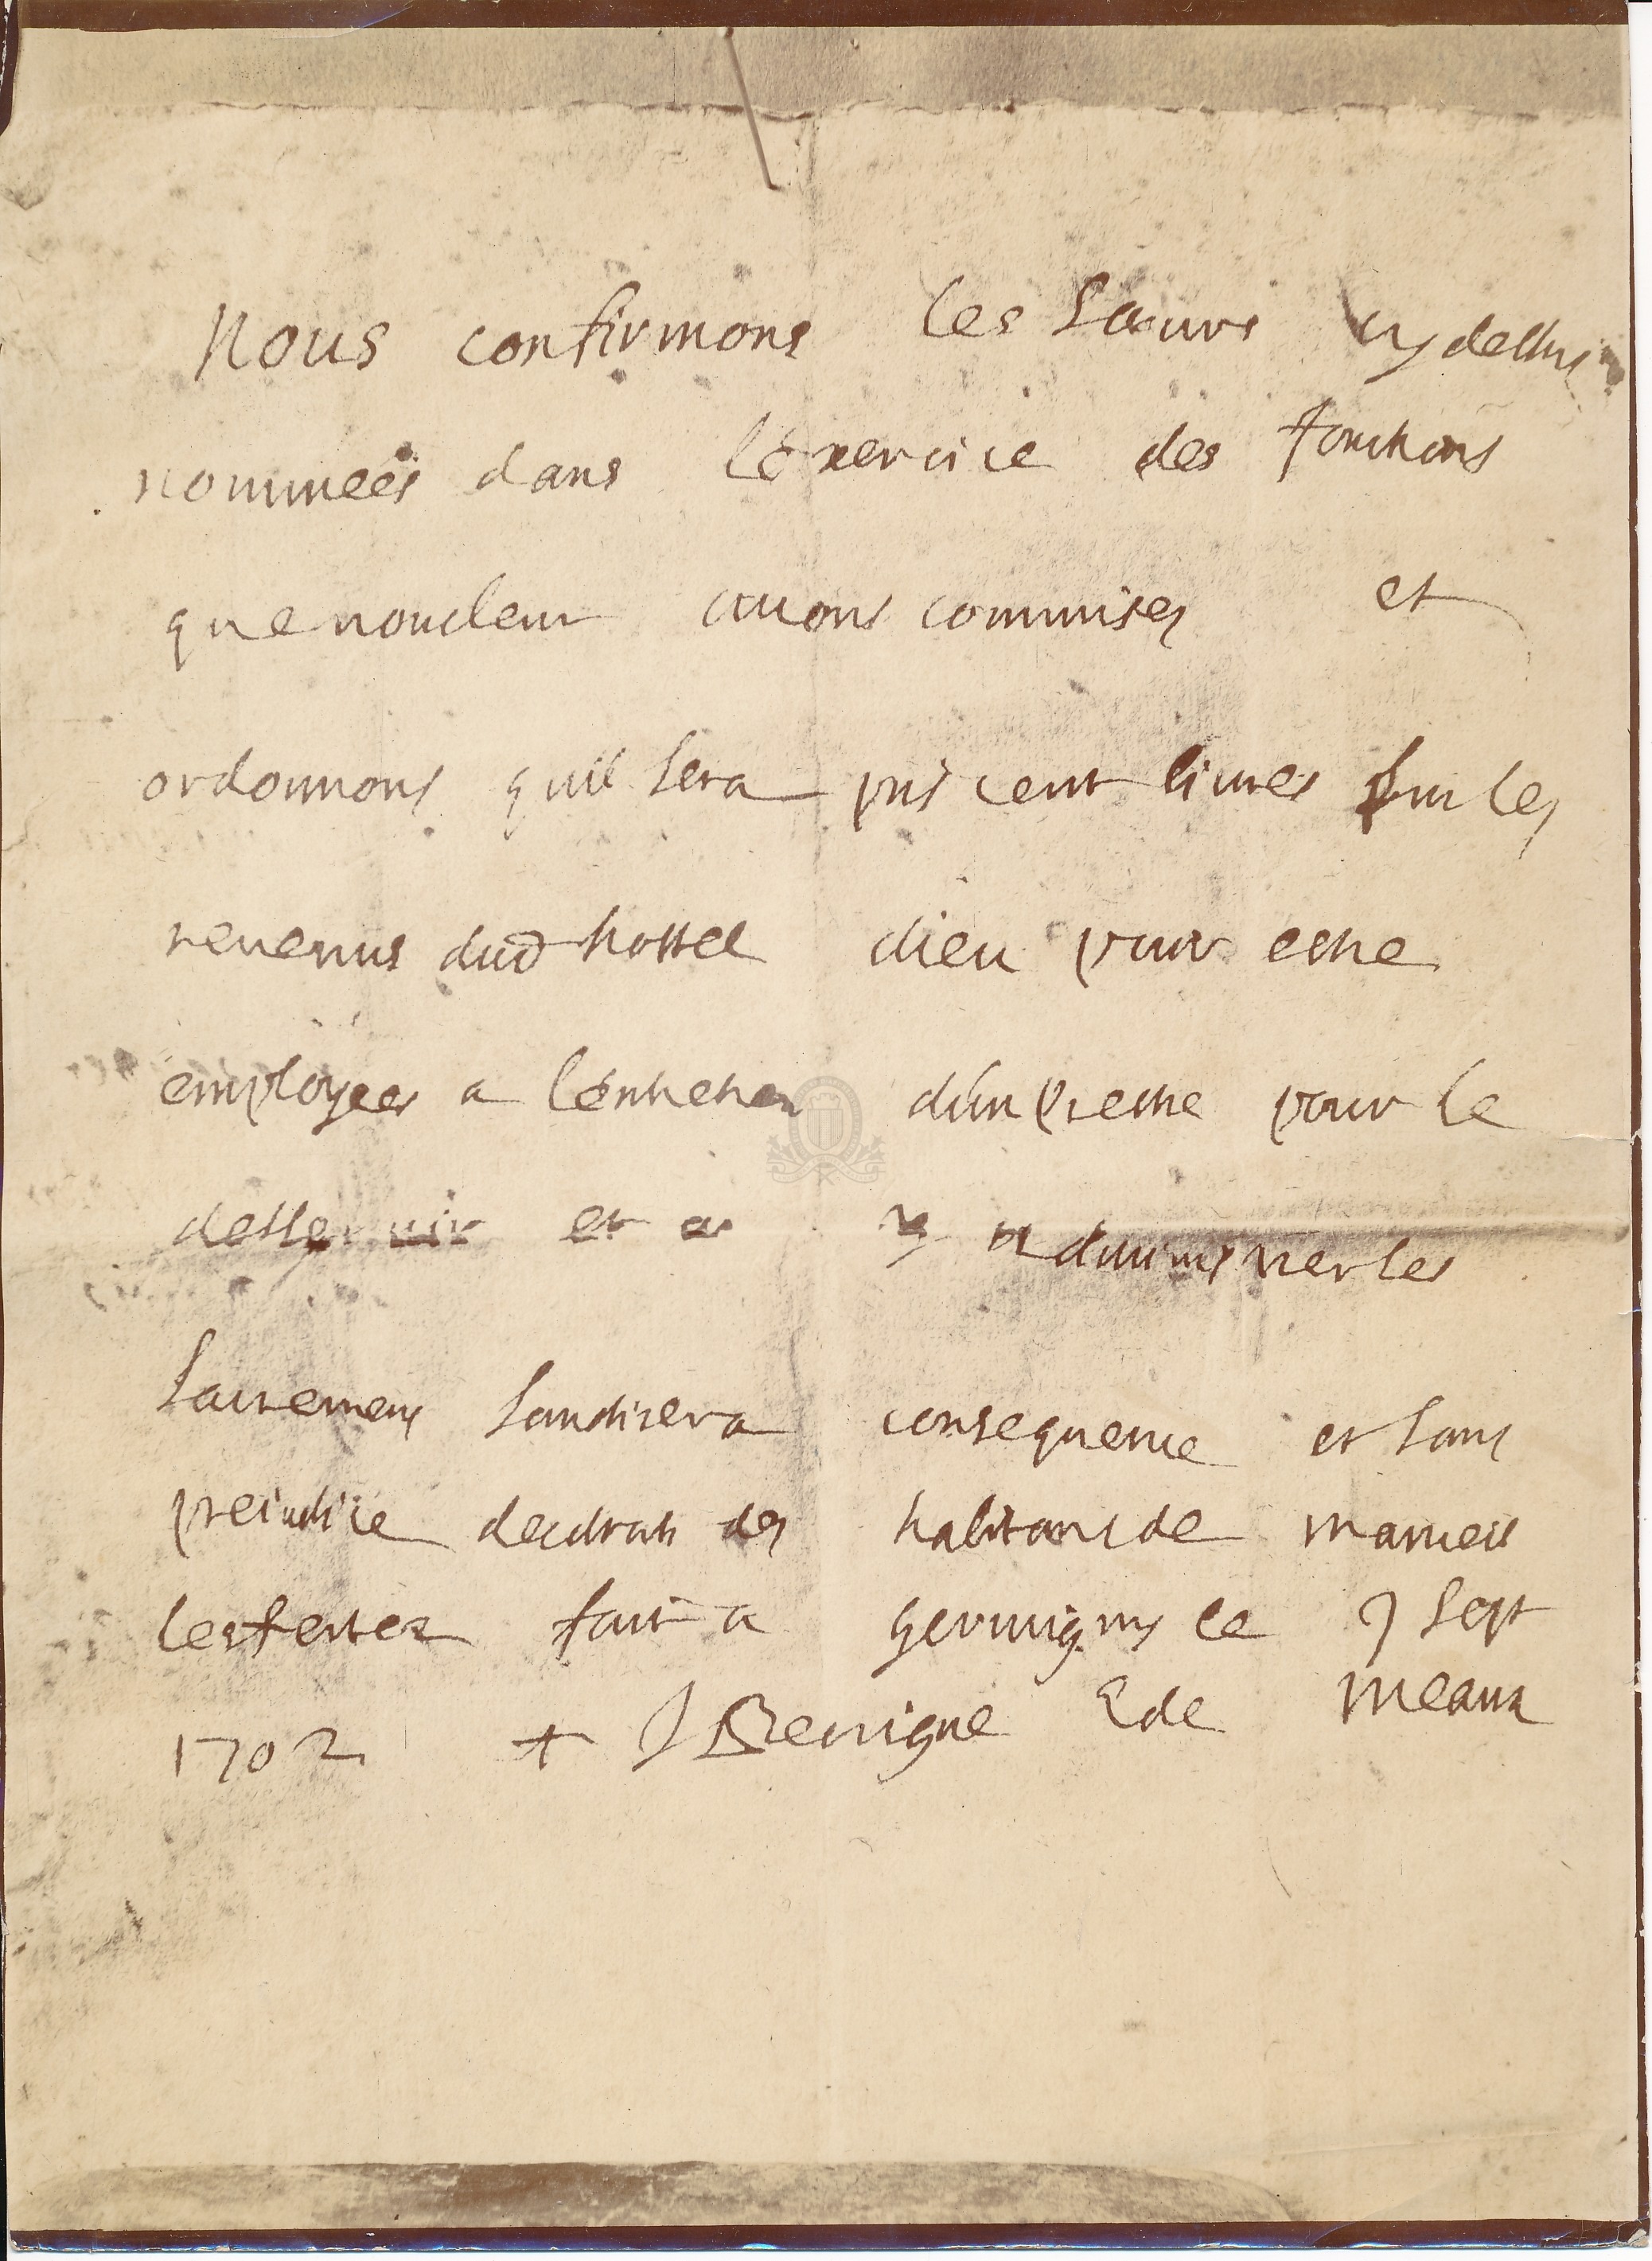 Nous confirmons les Sœurs cy dessus
nommées dans l'exercice des fonctions
que nous leur auons commises et
ordonnons quil sera pris cent liures sur les
reuenus dud hostel dieu pour estre
employees a l'entretien d'un prestre pour le
desseruir et a y administrer les
Sacremens sans tirer a consequence et sans
preiudice des droits des habitans de mareuil
les fertez fait a germigny le 7 Sept
1702 + J Benigne E de Meaux